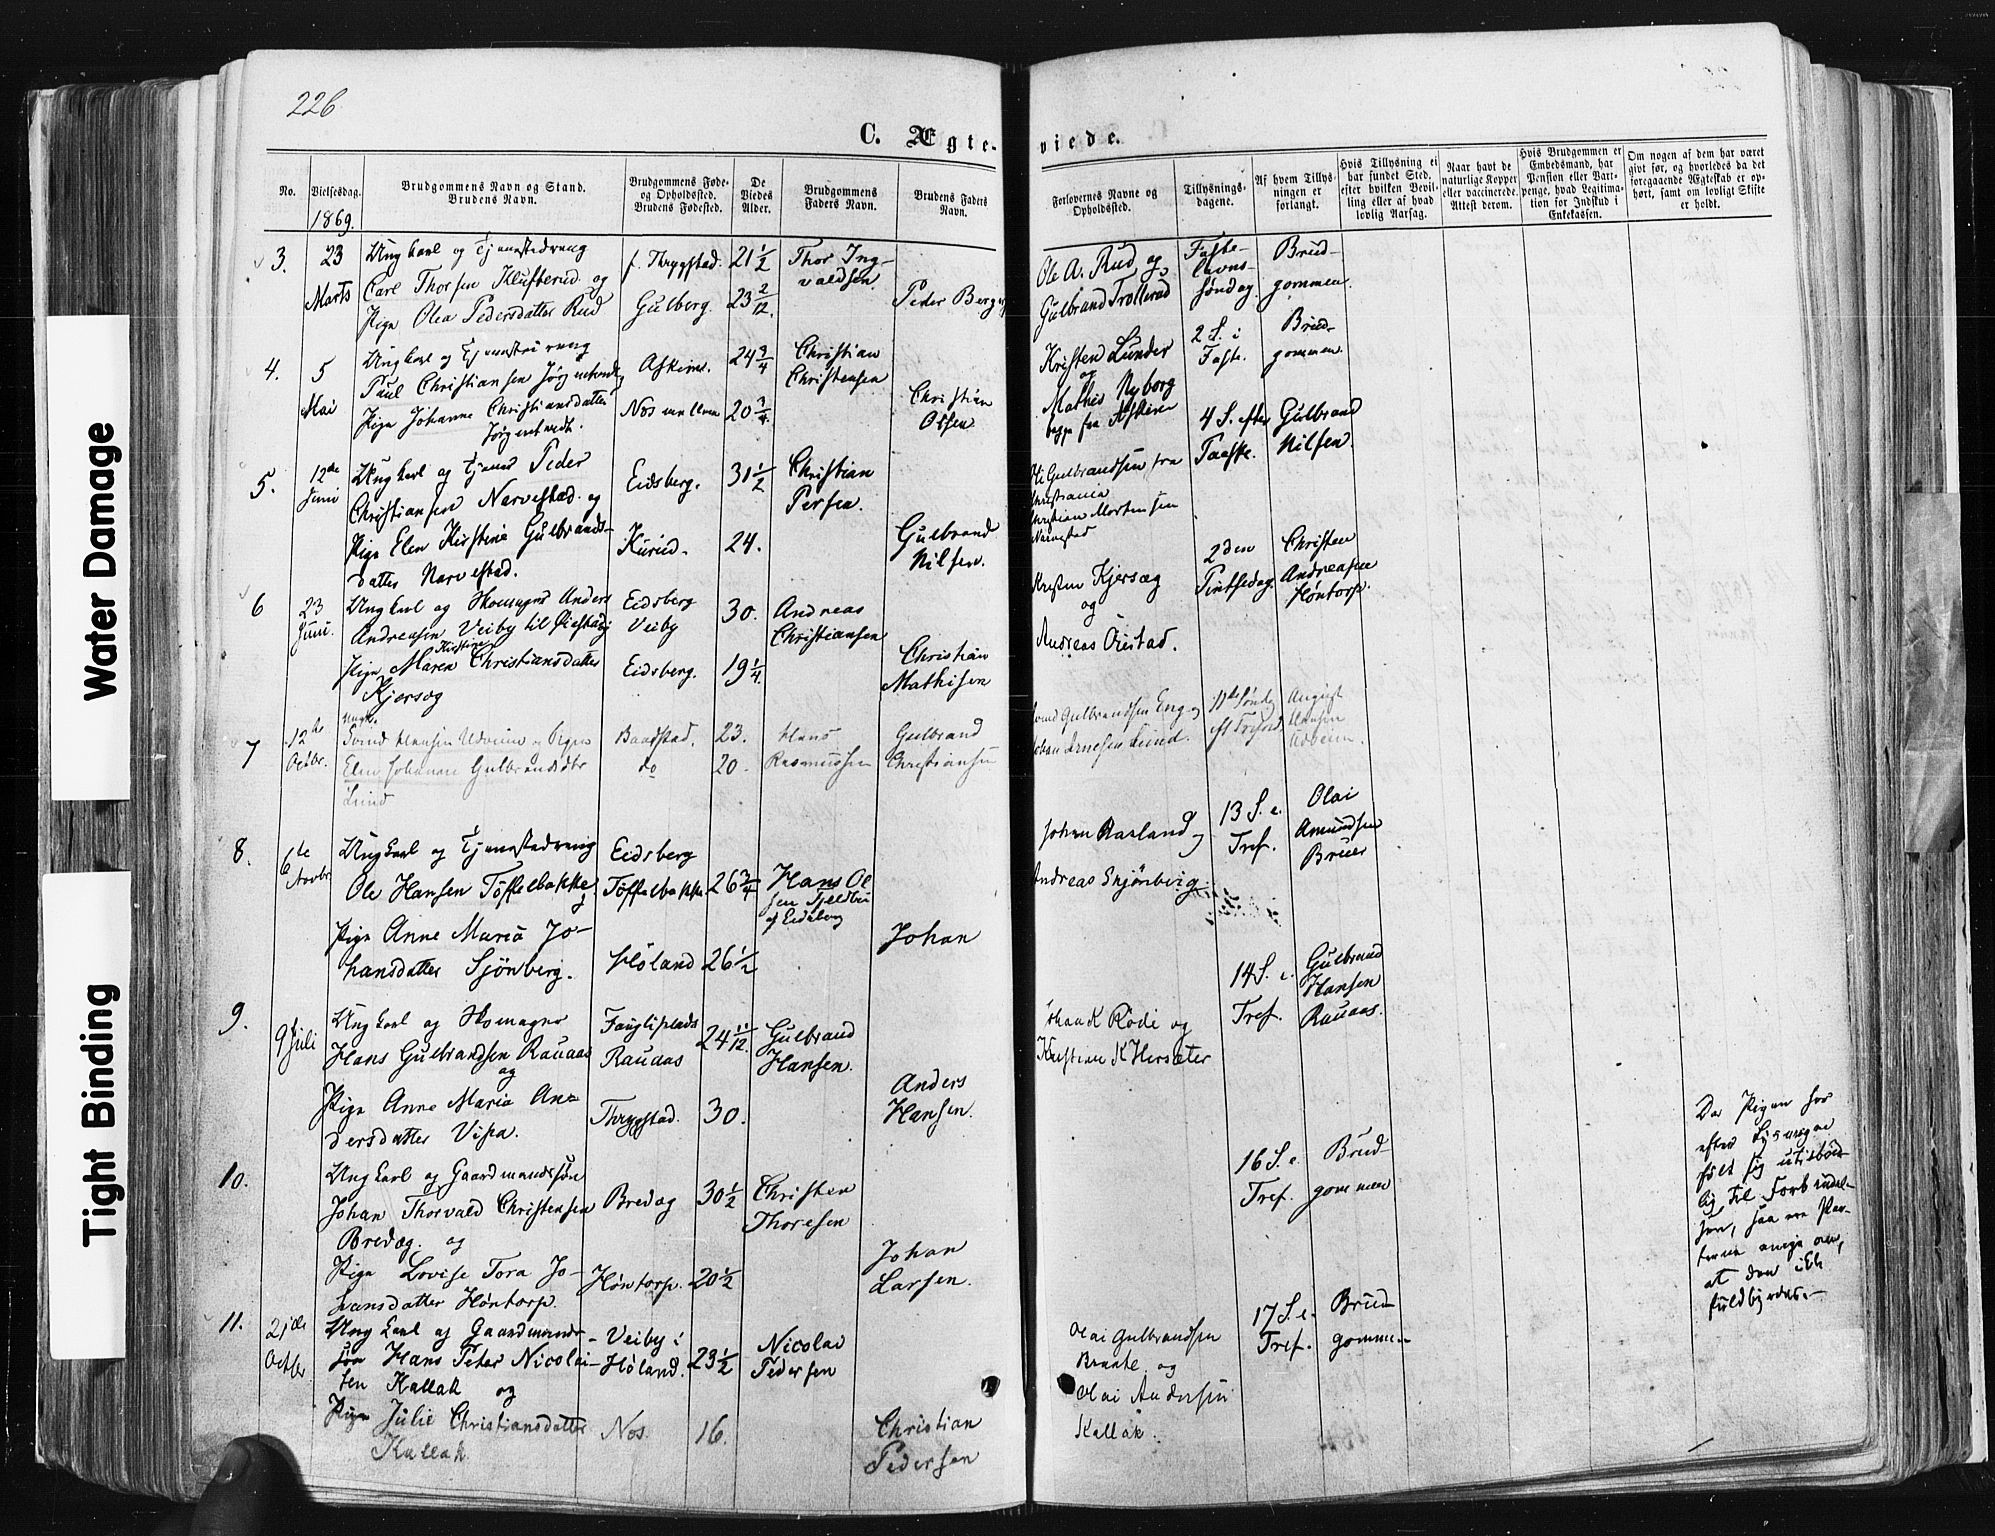 226
C. Ægte-
viede.
No.
Vielsesdag.
1869.
Brudgommens Navn og Stand.
Brudens Navn.
Brudgommens Føde-
og Opholdsted.
Brudens Fødested.
De
Viedes
Alder.
Brudgommens
Faders Navn.
Brudens Faders
Navn.
Forlovernes Navne og
Opholdsted.
Tillysnings-
dagene.
Af hvem Tillys-
ningen er
forlangt.
Hvis Tillysning ei
har fundet Sted,
efter hvilken Bevil-
ling eller af hvad
lovlig Aarsag.
Naar havt de
naturlige Kopper
eller vaccinerede.
Attest derom.
Hvis Brudgommen er
Embedsmand, har
Pension eller Vart-
penge, hvad Legitima-
tion for Indskud i
Enkekassen.
Om nogen af dem har været
gift før, og hvorledes da det
foregaaende Ægteskab er op-
hørt, samt om lovligt Skifte
er holdt.
3.
23
Marts
Ungkarl og
Carl Thorsen Klufterud og
Pige Olea Pedersdatter Rud
f. Thrygstad.
Gulberg.
21 1/2
23 2/12.
Thor Ing-
valdsen.
Peder Berger
Ole A. Rud og
Gulbrand Trollerud
Faste-
lavns-
søndag.
Brud-
gommen.
4.
5
Mai
Ungkarl og
Paul Christiansen
Pige Johanne Christiansdatter
Askim.
24 3/4
20 3/4.
Christian
Christensen
Christian
Olsen
Kristen Lunder
og
Mathis Nyborg
begge fra Askim
2 S. i
Faste.
Brud-
gommen.
5.
12de
Juni
Ungkarl og Tjener Peder
Christiansen Narvestad og
Pige Elen Kirstine Gulbrands-
datter Narvestad.
Eidsberg.
31 1/2
24.
Christian
Persen.
Gulbrand
Nilsen.
Gulbrandsen fra
Christiania
Christian Mortensen
Narvestad
4 S. efter
Paaske.
Gulbrand
Nilsen.
6
23
Juni.
Ungkarl og Skomager Anders
Andreasen Veiby til
Pige Maren Kirstine Christiansdatter
Kjersæg
Eidsberg
Veiby
Eidsberg.
30.
19 1/4.
Andreas
Christiansen
Christian
Mathisen
Kristen Kjersæg
og
Andreas Öiestad.
2den
Pintsedag
Christen
Andreasen
Höntorp.
7
12te
Octbr.
Ungk.
Hansen Udveim og Pigen
Elen Johanne Gulbrandsdtr
Lund
Baastad.
do
23.
20.
Hans
Rasmussen
Gulbrand
Christiansen
Gulbrandsen Eng og
Johan Arnesen Lund.
11te Sönd.
August
Hansen
Udveim.
8.
6te
Novbr.
Ungkarl og
Ole Hansen Töffelbakke
og
Pige Anne Maria Jo-
hansdatter Sjönberg.
Eidsberg
Töffelbakke
Höland
26 3/4
26 1/2
Hans Ol
sen
af Eidsberg
Johan
Johan Aasland og
Andreas Enjönberg
13 S. e.
Tref.
Olai
Amundsen
Bruer
9.
9 Juli
Ungkarl og Skomager
Hans Gulbrandsen Rauaas
og
Pige Anne Maria An-
dersdatter Visa.
Fougliplads
Rauaas
Thrygstad.
24 11/12.
30.
Gulbrand
Hansen.
Anders
Hansen.
Johan K Röde og
Kristian K Hersæter
14 S. e.
Tref.
Gulbrand
Hansen
Rauaas.
10.
Ungkarl og Gaardmandssön
Johan Thorvald Christensen
Bredæg. og
Pige Lovise Tora Jo-
hansdatter Höntorp.
Bredæg
Höntorp.
30 1/2
20 1/2
Christen
Thoresen
Johan
Larsen.
16 S. e.
Tref.
Brud-
gommen
Da Pigen har
efter Lysningen
fölt sig utilböi-
lig til Forbindel-
sen, saa ere Par-
terne enige om,
at den ikke
fuldbyrdes.
11.
21de
Octbr
Ungkarl og Gaardmands-
sön Hans Peter Nicolai-
sen Kallak og
Pige Julie Christiansdatter
Kallak
Veiby i
Höland.
Nos.
23 1/2
16.
Nicolai
Pedersen
Christian
Pedersen
Olai Gulbrandsen
Braate og
Olai Andersen
Kallak.
17 S. e.
Tref.
Brud-
gommen
Water Damage
Tight Binding